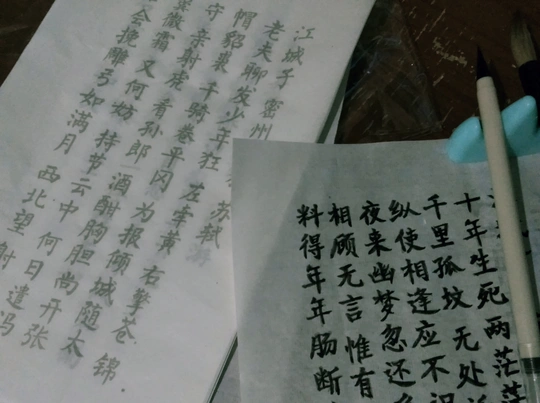 江城子 密州 苏轼
老夫聊发少年狂 左牵黄 右擎苍 锦
帽貂裘 千骑卷平冈 为报倾城随太
守 亲射虎 看孙郎 酒酣胸胆尚开张
鬓微霜 又何妨 持节云中 何日遣冯
会挽雕弓如满月 西北望 射
十年生死两茫茫
千里孤坟 无处
纵使相逢应不识
夜来幽梦忽还
相顾无言 惟有
料得年年肠断